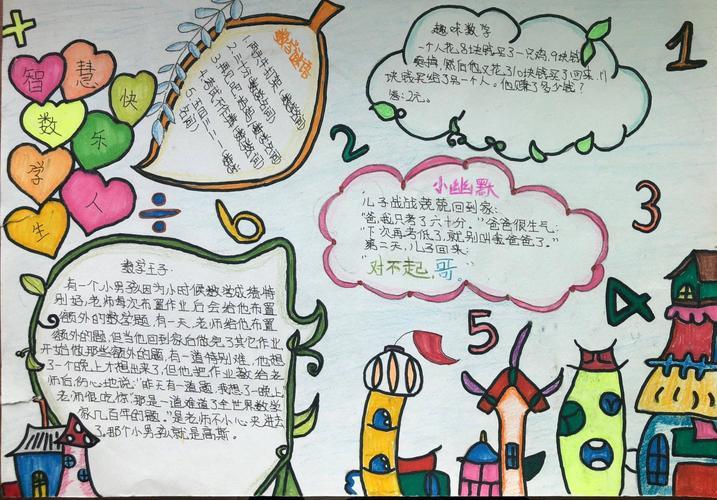 智 慧
数 快
乐
学 人
生
数学谜语
4.考试不作弊
趣味数学
一个人花8块钱买了一只鸡,9块钱
卖掉,然后他又花了10块钱买了回来,11
块钱卖给了另一个人。他赚了多少钱?
答:2元。
1
2
3
4
5
6
小幽默
儿子战战兢兢回到家:
"爸,我只考了六十分。"爸爸很生气:
"下次再考低了,就别叫我爸爸了。"
第二天,儿子回来:
"对不起,哥。"
数学王子
有一个小男孩因为小时候数学成绩特
别好,老师每次布置作业后会给他布置
额外的数学题,有一天,老师给他布置
额外的题,但当他回到家后做完了其它作业,
开始做那些额外的题,有一道特别难,他想
了一个晚上才想出来了,但他把作业教给老
师后,伤心地说:"昨天有一道题我想了一晚上"
老师很吃惊"那是一道难道了全世界数学
家几百年的题。"是老师不小心夹进去
了。那个小男孩就是高斯。